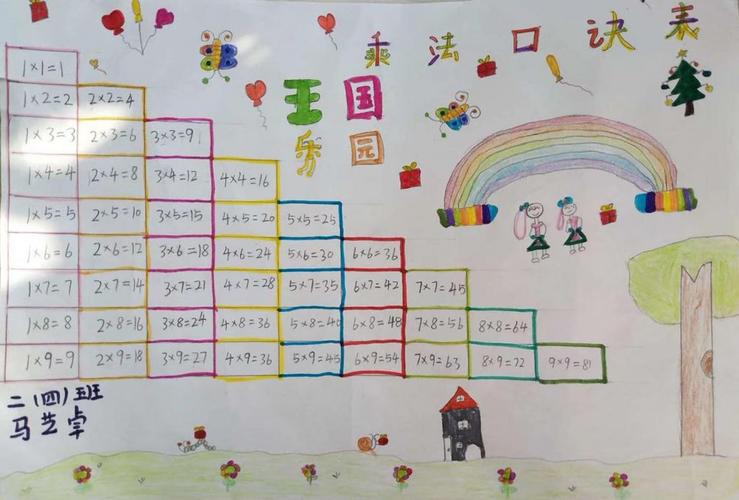 乘法口诀表
王国
乐园
1×1=1
1×2=2 2×2=4
1×3=3 2×3=6 3×3=9
1×4=4 2×4=8 3×4=12 4×4=16
1×5=5 2×5=10 3×5=15 4×5=20 5×5=25
1×6=6 2×6=12 3×6=18 4×6=24 5×6=30 6×6=36
1×7=7 2×7=14 3×7=21 4×7=28 5×7=35 6×7=42 7×7=45
1×8=8 2×8=16 3×8=24 4×8=36 5×8=40 6×8=48 7×8=56 8×8=64
1×9=9 2×9=18 3×9=27 4×9=36 5×9=45 6×9=54 7×9=63 8×9=72 9×9=81
二(四)班
马芝卓